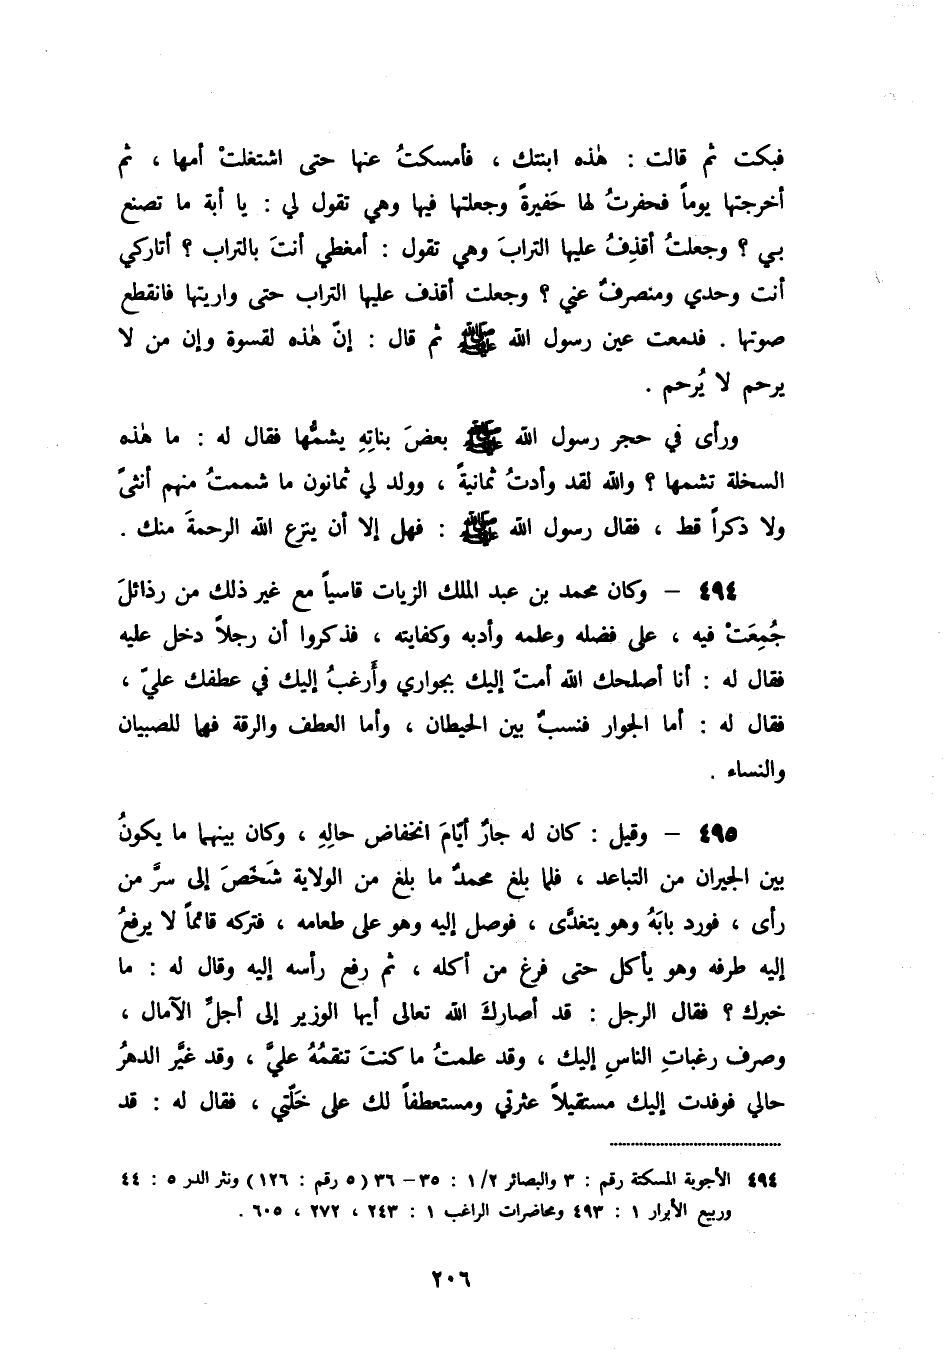 فبكت ثم قالت : هٰذه ابنتك ، فأمسكتُ عنها حتى اشتغلتْ أمها ، ثم
أخرجتها يوماً فحفرتُ لها حَفيرةً وجعلتها فيها وهي تقول لي : يا أبة ما تصنع
بي ؟ وجعلتُ أقذِفُ عليها الترابَ وهي تقول : أمغطي أنتَ بالتراب ؟ أتاركي
أنت وحدي ومنصرفٌ عني ؟ وجعلت أقذف عليها التراب حتى واريتها فانقطع
صوتها . فدمعت عين رسول الله ﷺ ثم قال : إنّ هٰذه لقسوة وإن من لا
يرحم لا يُرحم .
ورأى في حجر رسول الله ﷺ بعضَ بناتِهِ يشمُّها فقال له : ما هٰذه
السخلة تشمها ؟ والله لقد وأدتُ ثمانيةً ، وولد لي ثمانون ما شممتُ منهم أنثىً
ولا ذكراً قط ، فقال رسول الله ﷺ : فهل إلا أن ينزع الله الرحمةَ منك .
٤٩٤ – وكان محمد بن عبد الملك الزيات قاسياً مع غير ذلك من رذائلَ
جُمِعَتْ فيه ، على فضله وعلمه وأدبه وكفايته ، فذكروا أن رجلاً دخل عليه
فقال له : أنا أصلحك الله أمتّ إليك بجواري وأَرغبُ إليك في عطفك عليّ ،
فقال له : أما الجوار فنسبٌ بين الحيطان ، وأما العطف والرقة فهما للصبيان
والنساء .
٤٩٥ – وقيل : كان له جارٌ أيّامَ انخفاض حالِهِ ، وكان بينهما ما يكونُ
بين الجيران من التباعد ، فلما بلغ محمدٌ ما بلغ من الولاية شَخَصَ إلى سرَّ من
رأى ، فورد بابَهُ وهو يتغدَّى ، فوصل إليه وهو على طعامه ، فتركه قائماً لا يرفعُ
إليه طرفه وهو يأكل حتى فرغ من أكله ، ثم رفع رأسه إليه وقال له : ما
خبرك ؟ فقال الرجل : قد أصارك الله تعالى أيها الوزير إلى أجلِّ الآمال ،
وصرف رغباتِ الناسِ إليك ، وقد علمتُ ما كنتَ تنقمُهُ عليَّ ، وقد غيَّر الدهرُ
حالي فوفدت إليك مستقيلاً عثرتي ومستعطفاً لك على خَلّتي ، فقال له : قد
٤٩٤ الأجوبة المسكتة رقم : ٣ والبصائر ١/٢ : ٣٥ – ٣٦ ( ٥ رقم : ١٢٦ ) ونثر الدر ٥ : ٤٤
وربيع الأبرار ١ : ٤٩٣ ومحاضرات الراغب ١ : ٢٤٣ ، ٢٧٢ ، ٦٠٥ .
٢٠٦